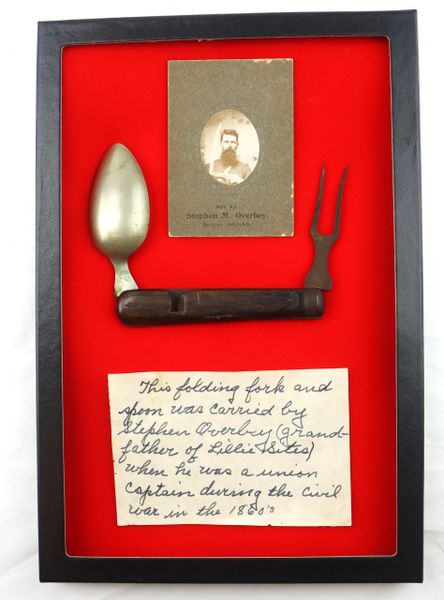 Stephen M. Overbey.
This folding fork and
spoon was carried by
Stephen Overbey (grand-
father of Lillie Sites)
when he was a union
captain during the Civil
war in the 1860's